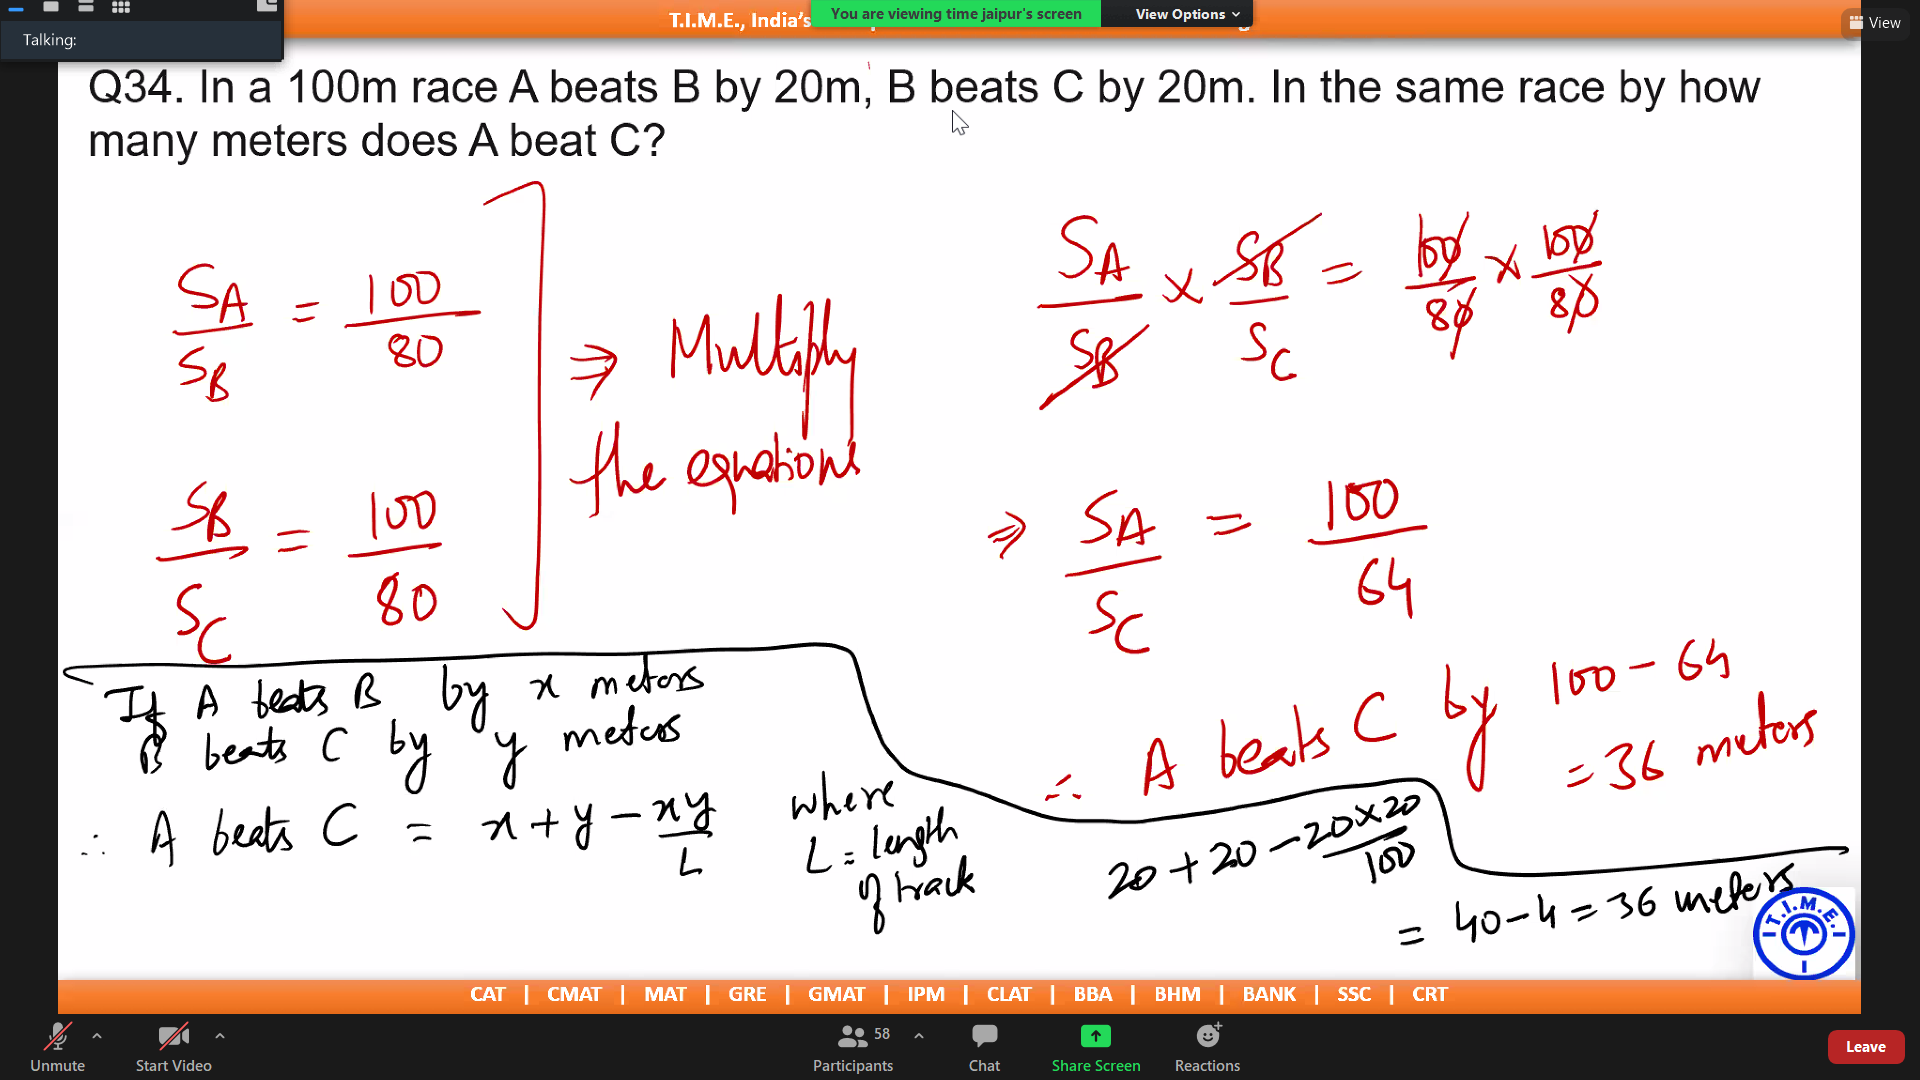 T.I.M.E., India's
You are viewing time jaipur's screen
View Options
View
Talking:
Q34. In a 100m race A beats B by 20m, B beats C by 20m. In the same race by how
many meters does A beat C?
SA/SB = 100/80
SB/SC = 100/80
⇒ Multiply
the equations
SA/SB × SB/SC = 100/80 × 100/80
⇒ SA/SC = 100/64
∴ A beats C by 100 - 64
= 36 meters
If A beats B by x meters
B beats C by y meters
∴ A beats C = x + y - xy/L
where
L = length
of track
20 + 20 - 20×20/100
= 40 - 4 = 36 meters
T.I.M.E.
CAT | CMAT | MAT | GRE | GMAT | IPM | CLAT | BBA | BHM | BANK | SSC | CRT
Unmute
Start Video
58
Participants
Chat
Share Screen
Reactions
Leave